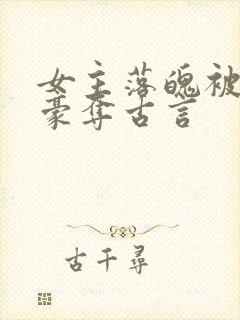 女主落魄被
豪奪古言
古千尋